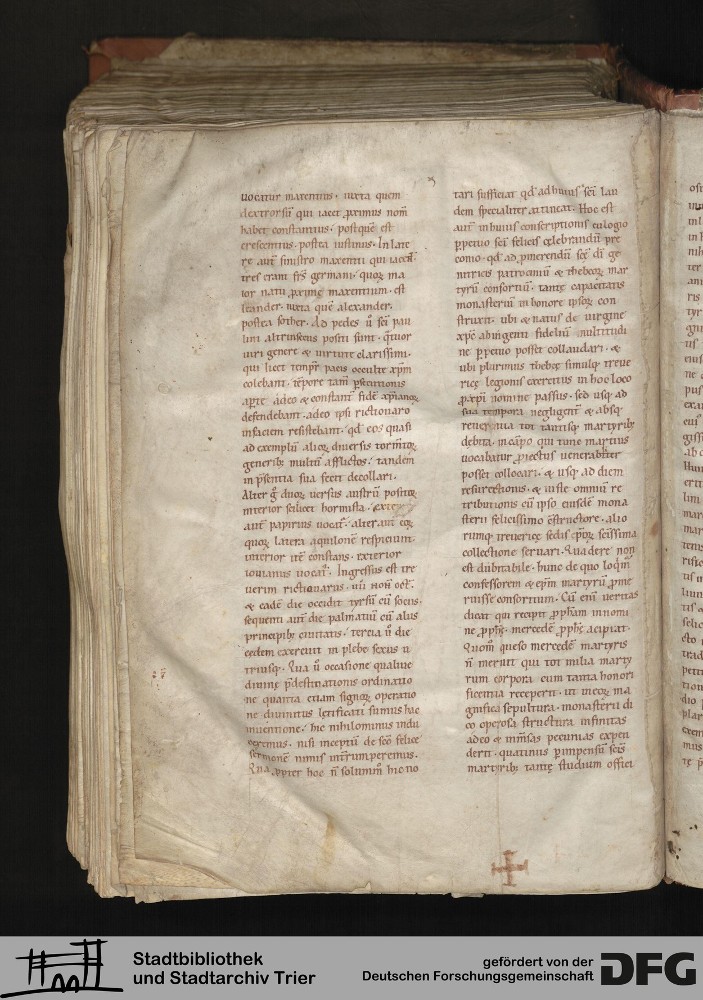 uocatur maxentius · iuxta quem
dextrorsū qui iacet ꝓximus nom̄
habet constantius · postquē est
crescentius · postea iustinus · In late
re aut̄ sinistro maxentii qui iacent
tres eran̄t fr̄s germani · quoꝝ ma
ior natu ꝓxime maxentium · est
leander · iuxta quē alexander ·
postea sother · Ad pedes u̅ sc̄i pau
lini altrinsecus positi sunt · quatuor
uiri genere & uirtute clarissimi ·
qui licet tempr̄ pacis occulte xp̄m
colebant · tēpore tam̄ ꝑsecutionis
aꝑte adeo & constant̄ fidē xp̄ianoꝝ
defendebant · adeo ipsi rictiouaro
in faciem resistebant · qd̄ eos quasi
ad exemplū alioꝝ diuersis tormtoꝝ
generibꝫ multū afflictos · tandem
in p̄sentia sua fecit decollari ·
Alter g̊ duoꝝ uersus austrū positoꝝ
interior scilicet hormista · exterior
aut̄ papirius uocat̄ · alter aut̄ eoꝝ
quoꝝ latera aquilonē respiciunt
interior itē constans · exterior
iouianus uocat̄ · Ingressus est tre
uerim rictiouarus · iiii non oct̄ ·
& eadē die occidit tyrsū cū sociis ·
sequenti aut̄ die palmatiū cū aliis
principibꝫ ciuitatis · tercia u̅ die
cedem exercuit in plebe sexus u
triusqꝫ · Qua u̅ occasione qualiue
diuinę p̄destinationis ordinatio
ne quanta etiam signoꝝ operatio
ne diuinitus lętificati sumus hac
inuentione · hic nihilominus indu
ceremus · nisi inceptū de sc̄o felice
sermonē nimis int̄rumperemus ·
Qua ꝓpter hoc n̄ solumm̊ hic no
tari sufficiat qd̄ ad huius sc̄i lau
dem specialiter attineat · Hoc est
aut̄ in huius conscriptionis eulogio
ꝑpetuo sc̄i felicis celebrandū pre
conio · qd̄ ad ꝓmerendū sc̄e dī ge
nitricis patrociniū & thebeoꝝ mar
tyrū consortiū · tantę capacitatis
monasteriū in honore ipsoꝝ con
struxit · ubi & natus de uirgine
xp̄c ab ingenti fidelium multitudi
ne ꝑpetuo posset collaudari · &
ubi plurimus thebeoꝝ simulqꝫ treue
ricę legionis exercitus in hoc loco
ꝓ xp̄i nomine passus · sed usqꝫ ad
sua tempora negligent̄ & absqꝫ
reuerentia tot tantisqꝫ martyribꝫ
debita · in cāpo qui tunc martius
uocabatur ꝓiectus uenerabiliter
posset collocari · & usqꝫ ad diem
resurrectionis · & iuste omnium re
tributionis cū ipso eiusdē mona
sterii felicissimo cstructore · alio
rumqꝫ treuericę sedis ep̄oꝝ sc̄issima
collectione seruari · Qua de re non
est dubitabile · hunc de quo loqim̄
confessorem & ep̄m martyrū ꝓme
ruisse consortium · Cū enī ueritas
dicat qui recipit ꝓph̄am in nomi
ne ꝓphę · mercedē ꝓphę accipiat ·
Quom̊ queso mercedē martyris
n̄ meruit qui tot milia marty
rum corpora cum tanta honori
ficentia receperit · ut in eoꝝ ma
gnifica sepultura · monasterii di
co operosa structura infinitas
adeo & inm̄sas pecunias expen
derit · quatinus ꝑ inpensū sc̄is
martyribꝫ tantę studium offici
Stadtbibliothek
und Stadtarchiv Trier
gefördert von der
Deutschen Forschungsgemeinschaft
DFG